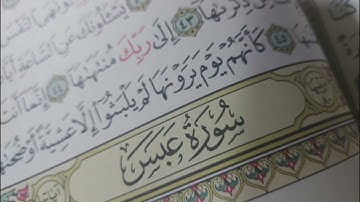 يَسْـَٔلُونَكَ عَنِ السَّاعَةِ
ذِكْرَىٰهَآ ٤٣ إِلَىٰ رَبِّكَ مُنتَهَىٰهَآ ٤٤ إِنَّمَآ أَنتَ
٤٥ كَأَنَّهُمْ يَوْمَ يَرَوْنَهَا لَمْ يَلْبَثُوٓا۟ إِلَّا عَشِيَّةً أَوْ ضُحَىٰهَا
سُورَةُ عَبَسَ